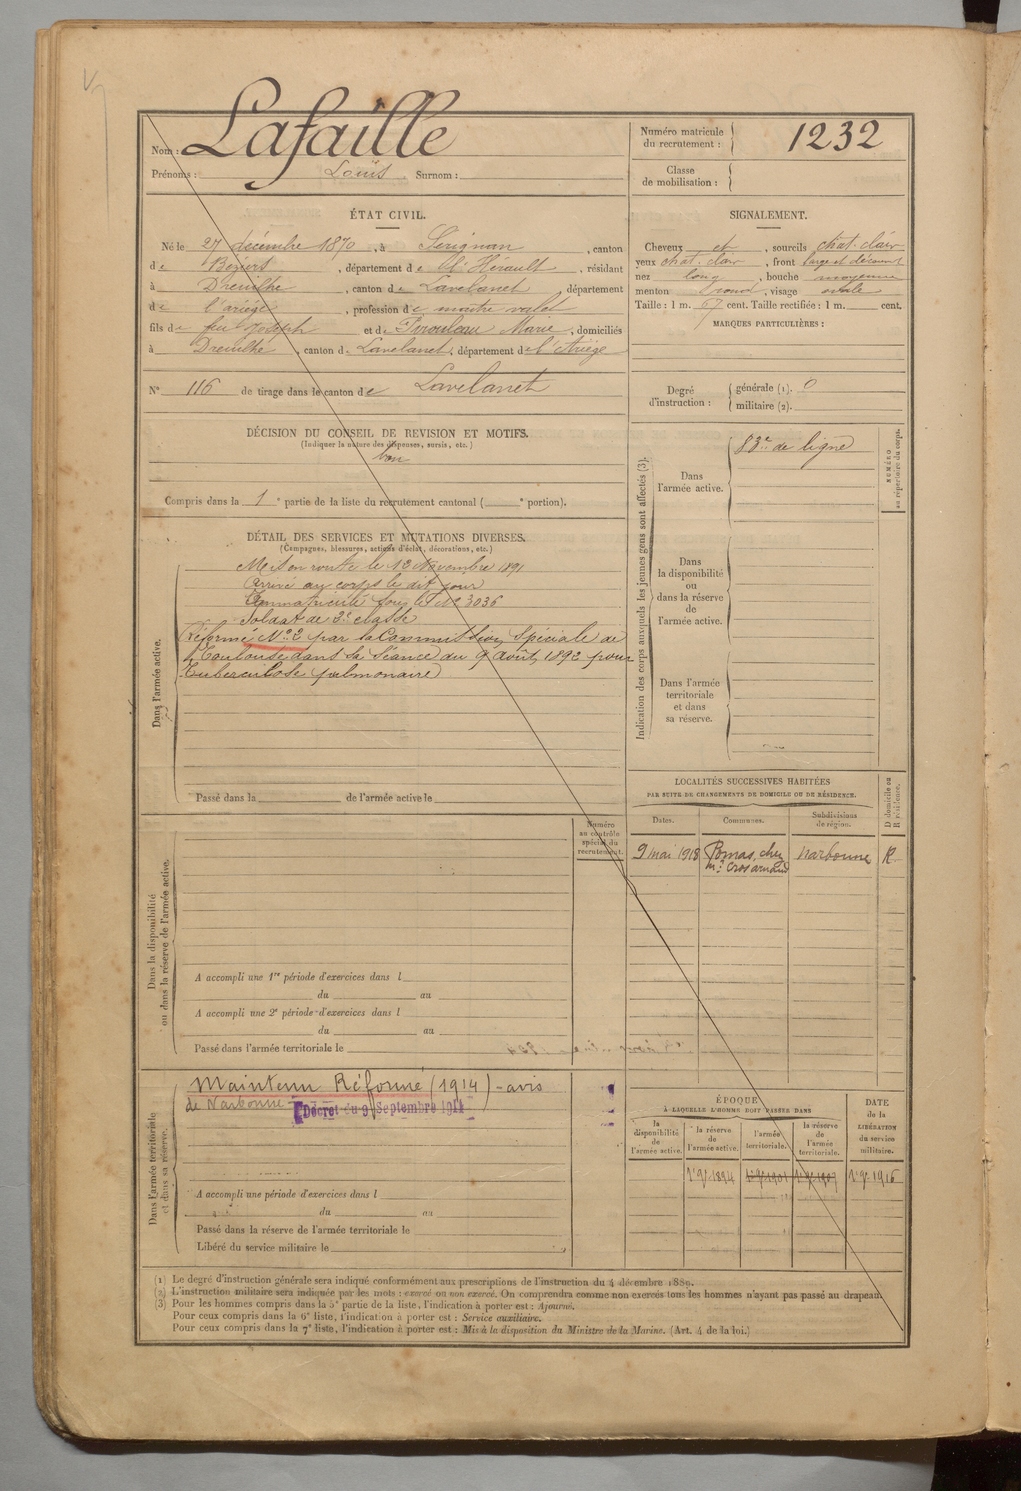 Nom : Lafaille
Prénoms : Louis Surnom :
Numéro matricule du recrutement : 1232
Classe de mobilisation :
ÉTAT CIVIL.
Né le 27 décembre 1870, à Sérignan, canton
de Béziers, département de l'Hérault, résidant
à Dreuilhe, canton de Lavelanet, département
de l'ariège, profession de maitre valet
fils de feu Joseph et de Pirouleau Marie, domiciliés
à Dreuilhe, canton de Lavelanet, département de l'Ariège
N° 116 de tirage dans le canton de Lavelanet
SIGNALEMENT.
Cheveux et, sourcils chat. clair
yeux chat. clair, front large et découvert
nez long, bouche moyenne
menton rond, visage ovale
Taille : 1 m. 67 cent. Taille rectifiée : 1 m. cent.
MARQUES PARTICULIÈRES :
Degré d'instruction : générale (1). 0
militaire (2).
DÉCISION DU CONSEIL DE REVISION ET MOTIFS.
(Indiquer la nature des dispenses, sursis, etc.)
bon
Compris dans la 1e partie de la liste du recrutement cantonal ( e portion).
DÉTAIL DES SERVICES ET MUTATIONS DIVERSES.
(Campagnes, blessures, actions d'éclat, décorations, etc.)
Dans l'armée active.
Mis en route le 13 Novembre 1891
Arrivé au corps le dit jour
Immatriculé sous le N° 3036
Soldat de 2e classe
Réformé N° 2 par la Commission Spéciale de
Toulouse dans sa Séance du 9 août 1892 pour
Tuberculose pulmonaire
Passé dans la de l'armée active le
Indication des corps auxquels les jeunes gens sont affectés (3).
NUMÉRO au répertoire du corps.
Dans l'armée active.
83e de ligne
Dans la disponibilité ou dans la réserve de l'armée active.
Dans l'armée territoriale et dans sa réserve.
LOCALITÉS SUCCESSIVES HABITÉES
PAR SUITE DE CHANGEMENTS DE DOMICILE OU DE RÉSIDENCE.
Dates. Communes. Subdivisions de région. D domicile ou R résidence.
9 mai 1918 Pomas, chez Narbonne R.
Mr Cros arnaud
Numéro au contrôle spécial du recrutement.
Dans la disponibilité ou dans la réserve de l'armée active.
A accompli une 1re période d'exercices dans l
du au
A accompli une 2e période d'exercices dans l
du au
Passé dans l'armée territoriale le
Dans l'armée territoriale et dans sa réserve.
Maintenu Réformé (1914) - avis
de Narbonne
Décret du 9 Septembre 1914
A accompli une période d'exercices dans l
du au
Passé dans la réserve de l'armée territoriale le
Libéré du service militaire le
ÉPOQUE
À LAQUELLE L'HOMME DOIT PASSER DANS
la disponibilité de l'armée active. la réserve de l'armée active. l'armée territoriale. la réserve de l'armée territoriale. DATE de la LIBÉRATION du service militaire.
1 9e 1894 1 9e 1901 1 9e 1907 1 9e 1916
(1) Le degré d'instruction générale sera indiqué conformément aux prescriptions de l'instruction du 4 décembre 1889.
(2) L'instruction militaire sera indiquée par les mots : exercé ou non exercé. On comprendra comme non exercés tous les hommes n'ayant pas passé au drapeau.
(3) Pour les hommes compris dans la 5e partie de la liste, l'indication à porter est : Ajourné.
Pour ceux compris dans la 6e liste, l'indication à porter est : Service auxiliaire.
Pour ceux compris dans la 7e liste, l'indication à porter est : Mis à la disposition du Ministre de la Marine. (Art. 4 de la loi.)